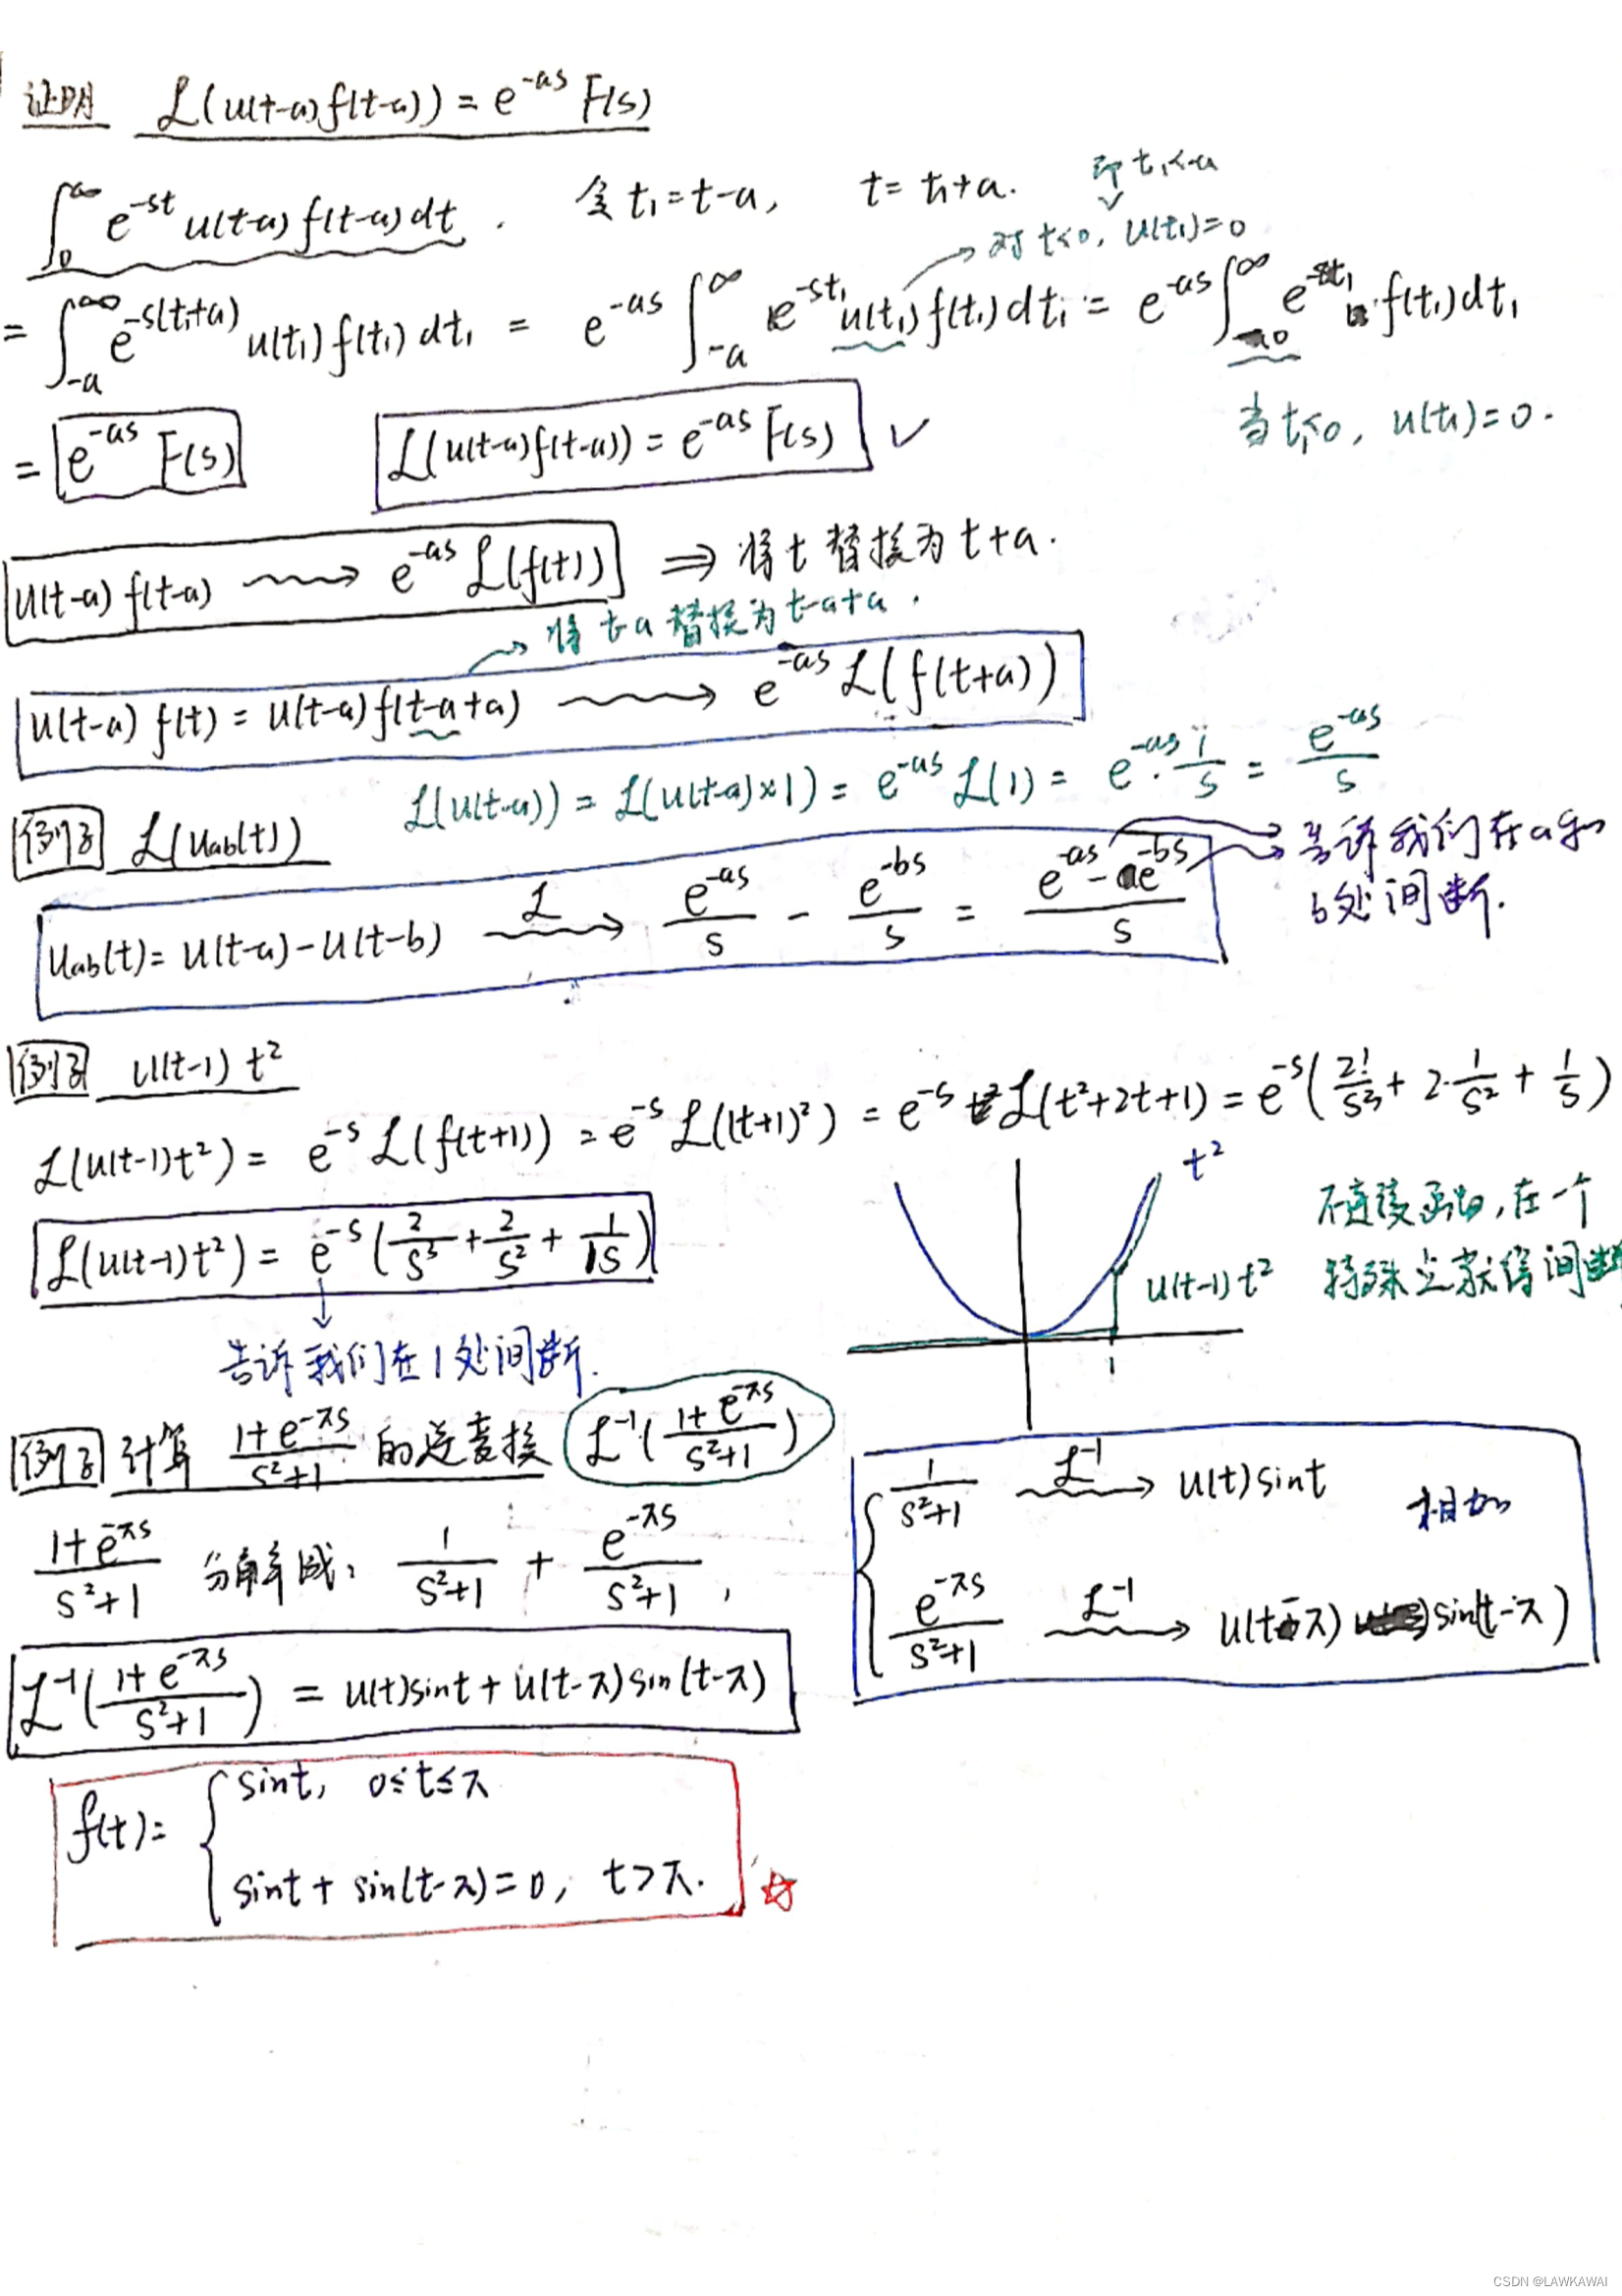 证明 ℒ(u(t-a)f(t-a)) = e^{-as} F(s)
即 t₁<-a
∫₀^∞ e^{-st} u(t-a) f(t-a) dt . 令 t₁=t-a, t= t₁+a.
对 t<0, u(t₁)=0
= ∫_{-a}^∞ e^{-s(t₁+a)} u(t₁) f(t₁) dt₁ = e^{-as} ∫_{-a}^∞ e^{-st₁} u(t₁) f(t₁) dt₁ = e^{-as} ∫₀^∞ e^{-st₁} f(t₁) dt₁
当 t₁<0, u(t₁)=0.
= e^{-as} F(s) ℒ(u(t-a)f(t-a)) = e^{-as} F(s) ✓
u(t-a) f(t-a) ⟿ e^{-as} ℒ(f(t)) ⇒ 将 t 替换为 t+a.
将 t-a 替换为 t-a+a.
u(t-a) f(t) = u(t-a) f(t-a+a) ⟿ e^{-as} ℒ(f(t+a))
ℒ(u(t-a)) = ℒ(u(t-a)×1) = e^{-as} ℒ(1) = e^{-as}·1/s = e^{-as}/s
例子 ℒ(u_{ab}(t))
u_{ab}(t) = u(t-a)-u(t-b) ⟿^{ℒ} e^{-as}/s - e^{-bs}/s = (e^{-as} - e^{-bs})/s
告诉我们在a和
b处间断.
例子 u(t-1) t²
ℒ(u(t-1)t²) = e^{-s} ℒ(f(t+1)) = e^{-s} ℒ((t+1)²) = e^{-s} ℒ(t²+2t+1) = e^{-s}(2!/s³ + 2·1/s² + 1/s)
ℒ(u(t-1)t²) = e^{-s}(2/s³ + 2/s² + 1/s)
告诉我们在1处间断.
t²
u(t-1)t²
1
不连续函数,在一个
特殊点获得间断
例子 计算 (1+e^{-πs})/(s²+1) 的逆变换 ℒ⁻¹((1+e^{-πs})/(s²+1))
(1+e^{-πs})/(s²+1) 分解成: 1/(s²+1) + e^{-πs}/(s²+1) ,
1/(s²+1) ⟿^{ℒ⁻¹} u(t)sint 相加
e^{-πs}/(s²+1) ⟿^{ℒ⁻¹} u(t-π) sin(t-π)
ℒ⁻¹((1+e^{-πs})/(s²+1)) = u(t)sint + u(t-π)sin(t-π)
f(t)= { sint, 0≤t≤π
sint + sin(t-π)=0, t>π. ☆
CSDN @LAWKAWAI